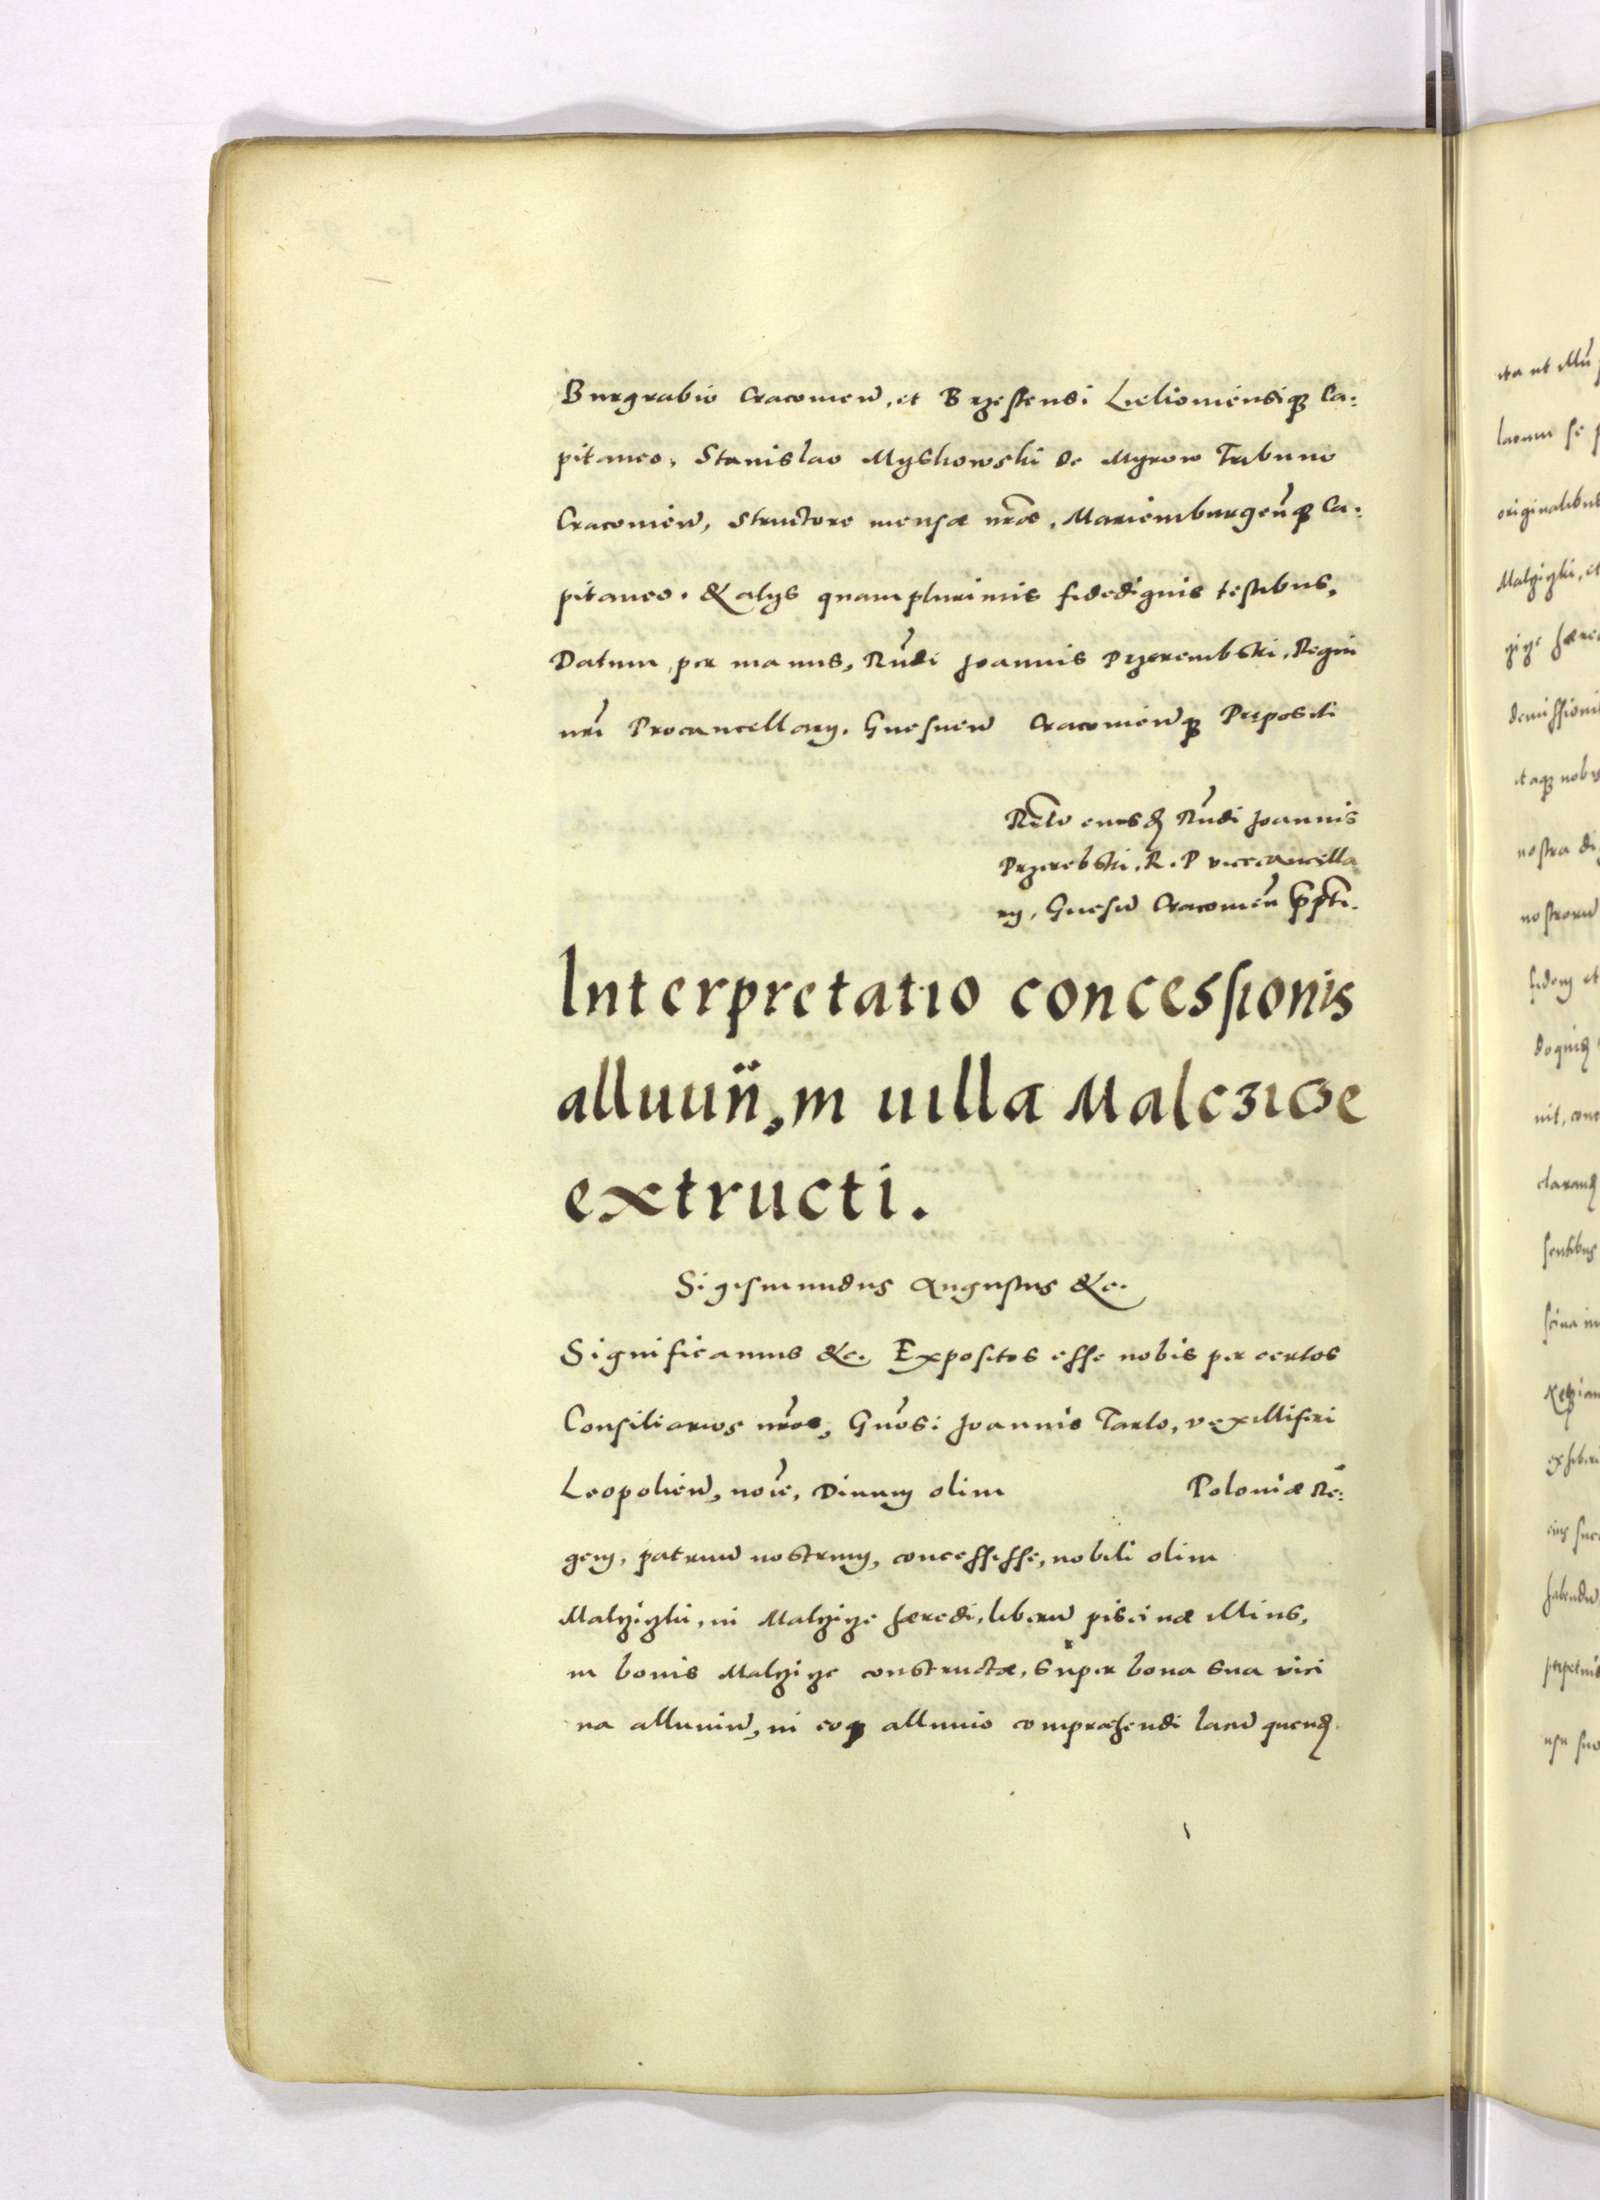 Burgrabio Cracovien̄, et Brzestensi Lielioviensiq3 Ca:
pitaneo, Stanislao Myskowski de Myrow Tribuno
Cracovien̄, Structore mensæ nr̄æ, Mariemburgen̄q3 Ca:
pitaneo. & alijs quamplurimis fidedignis testibus,
Datum per manus, Rn̄di Joannis Przerembski, Regni
nr̄i Procancellarij. Gnesnen̄ Cracovien̄q3 Prępositi
Relō eiusdē Rn̄di Joannis
Przerēbski. R. P vicecancella
rij, Gnesn̄ Cracovien̄ p̄pt̄i.
Interpretatio concessionis
alluuij, in uilla Malczicze
extructi.
Sigismundus Augustus &c.
Significamus &c. Expositos esse nobis per certos
Consiliarios nr̄os, Gn̄osi Joannis Tarlo, vexilliferi
Leopolien̄, noīe, Divum olim Poloniæ Re:
gem, patruū nostrum, concessisse, nobili olim
Malziczki, in Malzicze hæredi, liberū piscinæ illius,
in bonis Malzicze constructæ, super bona sua vici
na alluviū, in eoq3 alluvio compræhendi lacū quendā